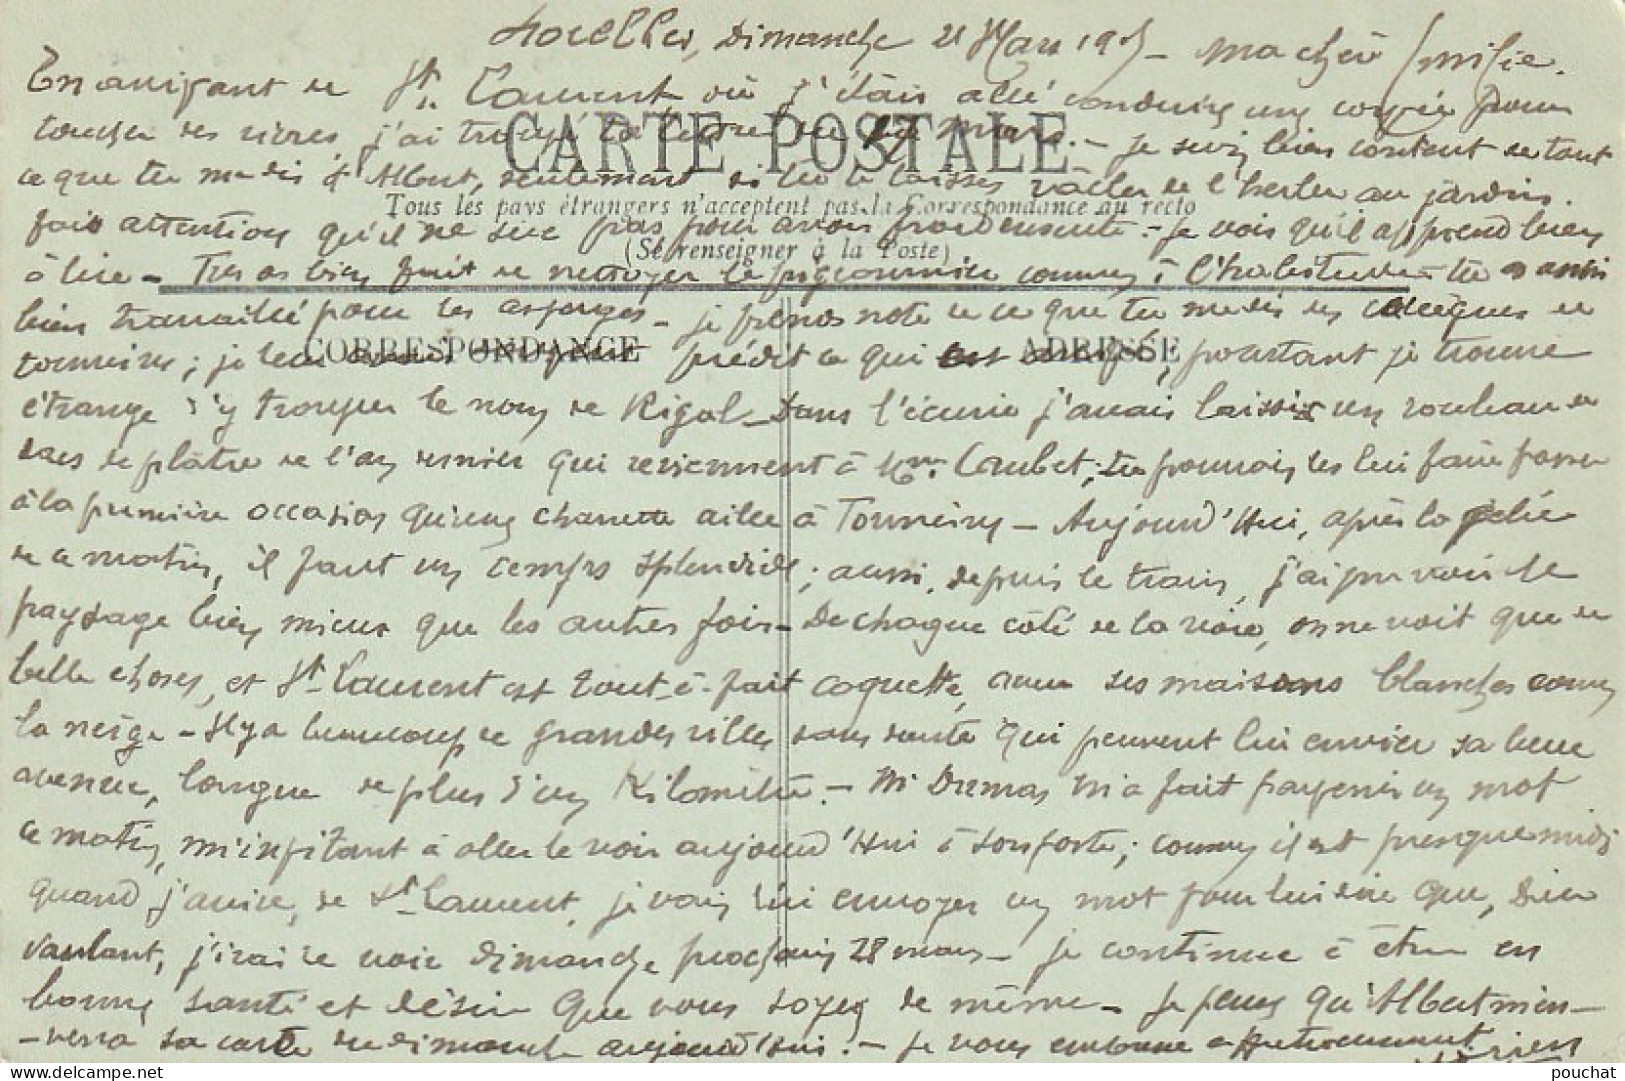 Dimanche 21 Mars 191 - Ma chère Emilie.
En arrivant de St Laurent où j'étais allé conduire une corvée pour
toucher des vivres, j'ai trouvé ta lettre du - Je suis bien content de tout
CARTE POSTALE
ce que tu me dis d'Albert, seulement si tu le laisses râcler de l'herbe au jardin.
Tous les pays étrangers n'acceptent pas la Correspondance au recto
fais attention qu'il ne sue pas pour avoir froid ensuite. - Je vois qu'il apprend bien
(Se renseigner à la Poste)
à lire - Tu as bien fait de nettoyer le pigeonnier comme à l'habitude - tu as aussi
bien travaillé pour les asperges - je prends note de ce que tu me dis des collègues de
Tonneins ; je leur prédit ce qui est ; pourtant je trouve
CORRESPONDANCE ADRESSE
étrange d'y trouver le nom de Rigal - Dans l'écurie j'avais laissé un rouleau de
sacs de plâtre de l'an dernier qui reviennent à Mr. Combet ; tu pourrais les lui faire passer
à la première occasion qu'une charrette aille à Tonneins - Aujourd'hui, après la gelée
de ce matin, il fait un temps splendide ; aussi, depuis le train, j'ai pu voir le
paysage bien mieux que les autres fois - De chaque côté de la voie, on ne voit que de
belle choses, et St Laurent est tout-à-fait coquette, avec ses maisons blanches comme
la neige - Il y a beaucoup de grandes villes sans doute qui peuvent lui envier sa belle
avenue, longue de plus d'un Kilomètre. - Mr Dumas m'a fait parvenir un mot
ce matin, m'invitant à aller le voir aujourd'hui à son poste ; comme il est presque midi
quand j'arrive, de St Laurent, je vais lui envoyer un mot pour lui dire que, Dieu
voulant, j'irai le voir dimanche prochain 28 mars - Je continue à être en
bonne santé et désire que vous soyez de même - Je pense qu'Albert m'en-
-verra sa carte de dimanche aujourd'hui. - Je vous embrasse affectueusement
pouchat